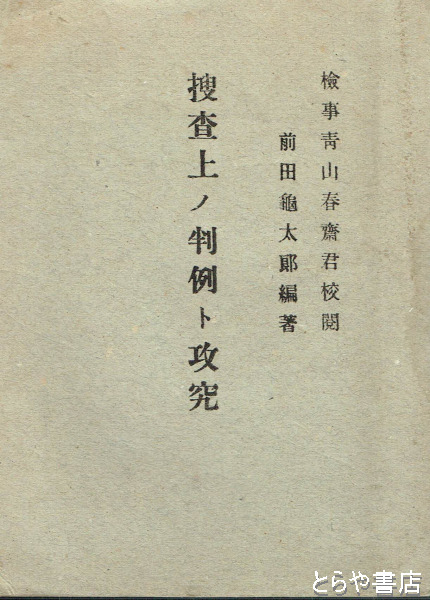 檢事靑山春齋君校閱
前田龜太郞編著
搜査上ノ判例ト攻究
とらや書店